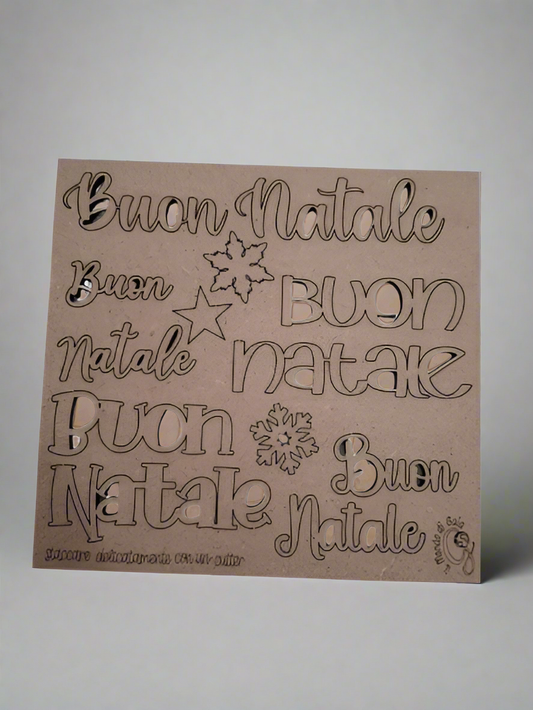 Buon Natale
Buon
Natale
Buon
natale
Buon
Natale
Buon
Natale
staccare delicatamente con un cutter
Mondo di Gaia